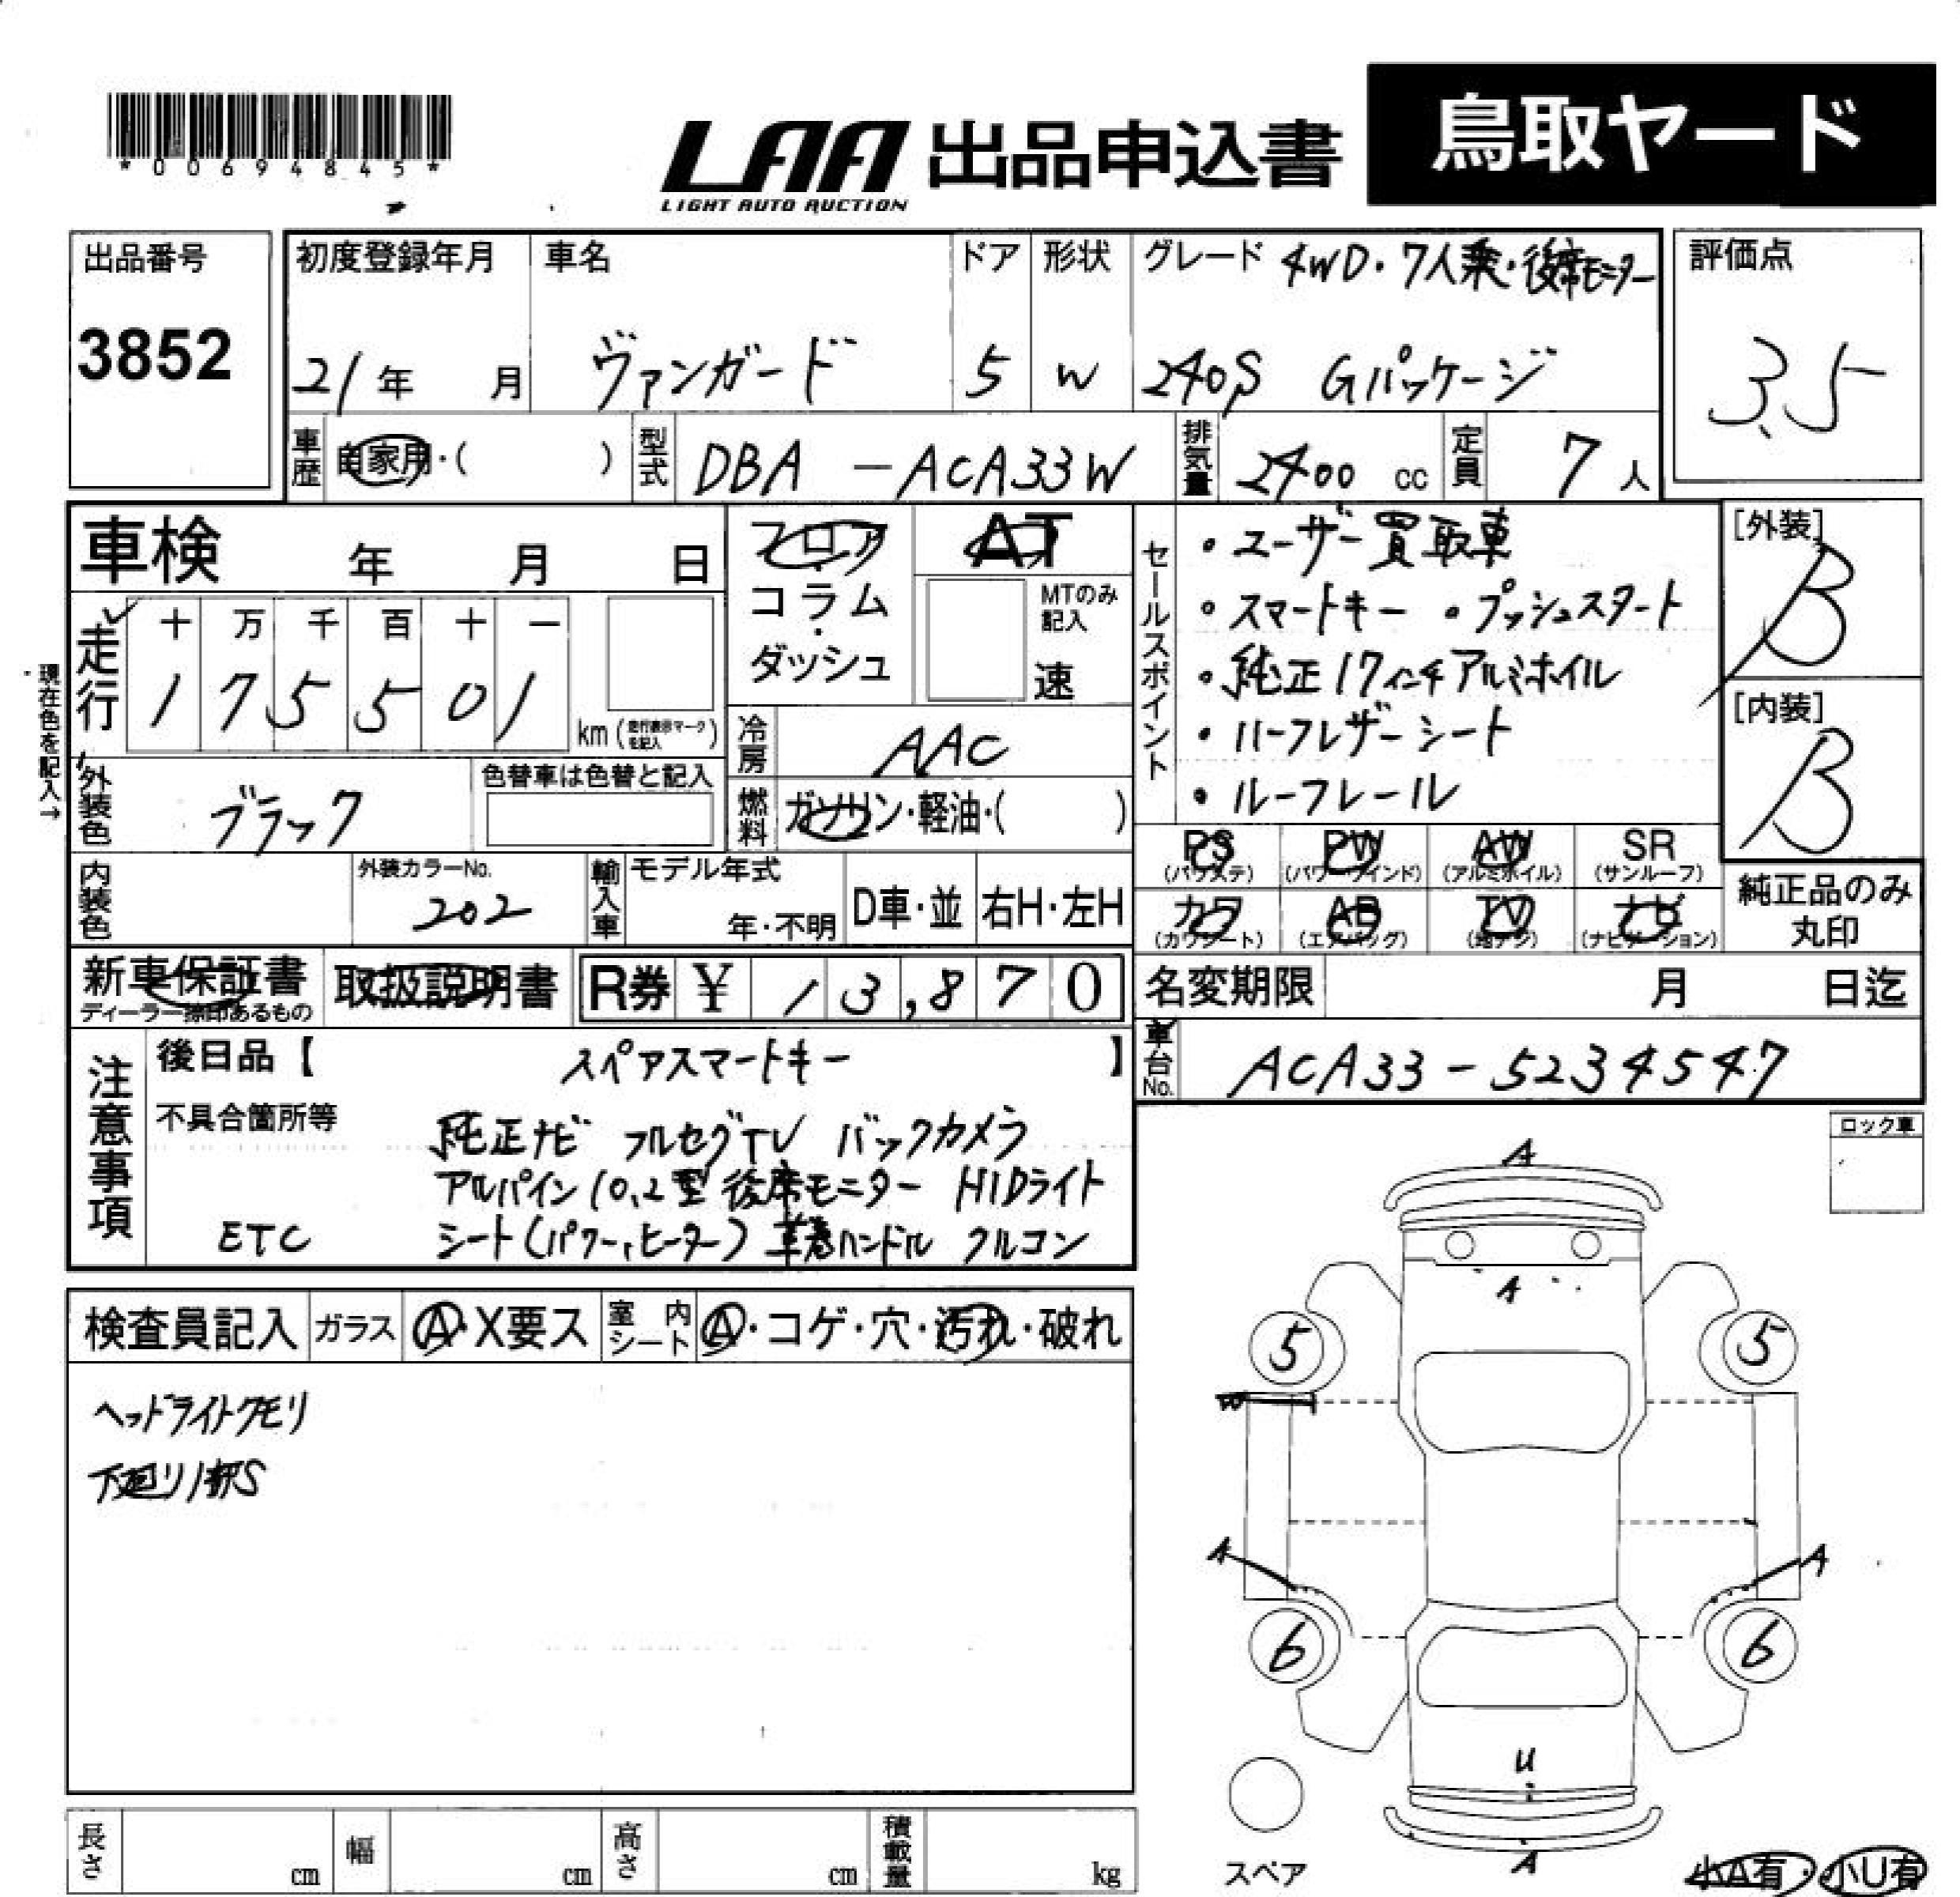 *00694845*
LAA 出品申込書 鳥取ヤード
LIGHT AUTO AUCTION
出品番号 初度登録年月 車名 ドア 形状 グレード 4WD・7人乗・後席モニター 評価点
3852 21年 月 ヴァンガード 5 W 240S Gパッケージ 3.5
車歴 自家用・( ) 型式 DBA -ACA33W 排気量 2400 cc 定員 7人
車検 年 月 日 フロア・コラム・ダッシュ AT
MTのみ記入 速
走行 十 万 千 百 十 一
1 7 5 5 0 1 km (走行表示マークを記入)
現在色を記入→
冷房 AAC
外装色 ブラック 色替車は色替と記入 燃料 ガソリン・軽油・( )
内装色 外装カラーNo. 202 輸入車 モデル年式 年・不明 D車・並 右H・左H
セールスポイント
・ユーザー買取車
・スマートキー ・プッシュスタート
・純正17インチアルミホイル
・ハーフレザーシート
・ルーフレール
[外装] B
[内装] B
PS (パワステ) PW (パワーウインド) AW (アルミホイル) SR (サンルーフ)
カワ (カワシート) AB (エアバッグ) TV (地デジ) ナビ (ナビゲーション)
純正品のみ丸印
新車保証書 取扱説明書 R券 ¥ 13,870
ディーラー捺印あるもの
名変期限 月 日迄
車台No. ACA33-5234547
注意事項
後日品【 スペアスマートキー 】
不具合箇所等 純正ナビ フルセグTV バックカメラ
アルパイン10.2型後席モニター HIDライト
ETC シート(パワー,ヒーター) 革巻ハンドル クルコン
ロック車
検査員記入 ガラス A・X要ス 室内シート A・コゲ・穴・汚れ・破れ
ヘッドライトクモリ
下廻り1部S
A
A
5 5
A A
6 6
U
A
スペア
小A有・小U有
長さ cm 幅 cm 高さ cm 積載量 kg